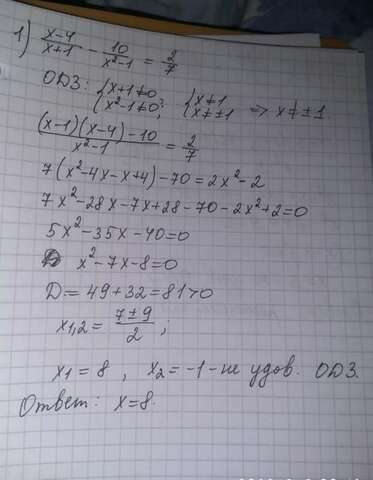 1) (x-4)/(x+1) - 10/(x²-1) = 2/7
ОДЗ: {x+1≠0 {x²-1≠0; {x≠1 {x≠±1 => x≠±1.
((x-1)(x-4)-10)/(x²-1) = 2/7
7(x²-4x-x+4)-70=2x²-2
7x²-28x-7x+28-70-2x²+2=0
5x²-35x-40=0
x²-7x-8=0
D=49+32=81>0
x1,2= (7±9)/2;
x1=8, x2=-1-не удов. ОДЗ.
Ответ: x=8.